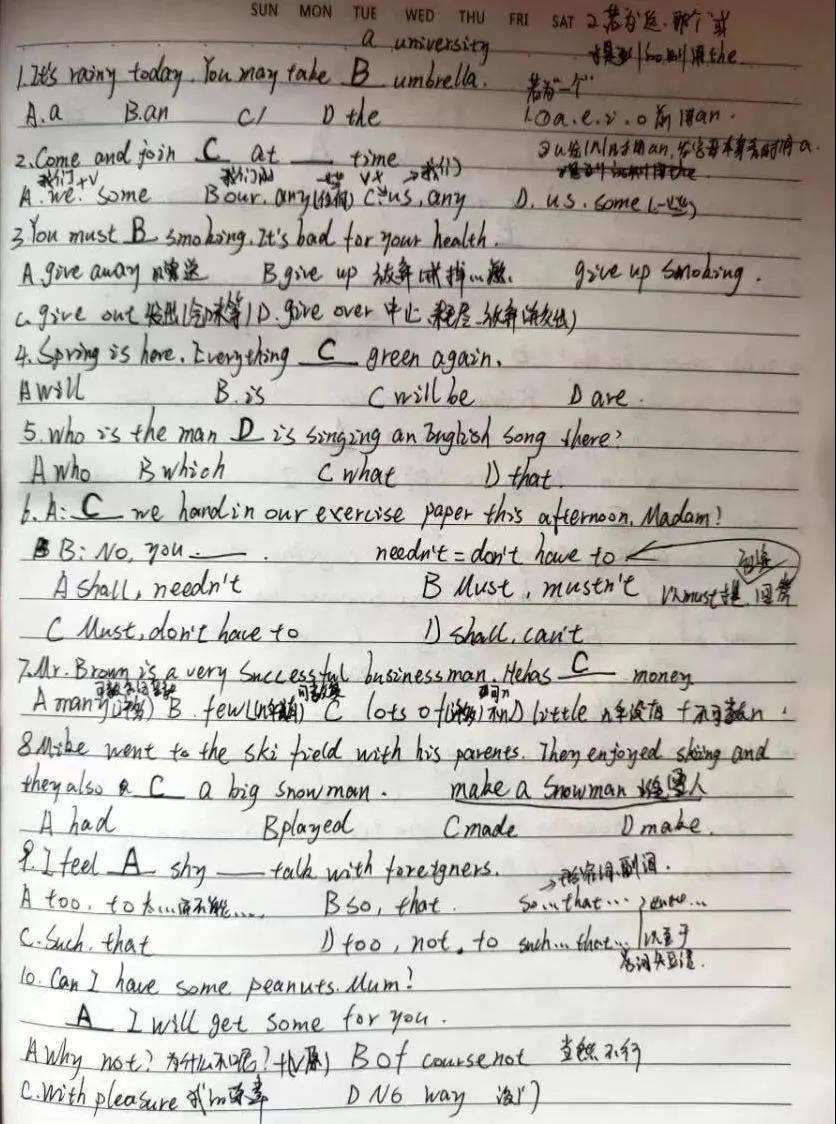 SUN MON TUE WED THU FRI SAT
a university
2.若为"这、那个"或
则用the.
若为"一个"
1.It's rainy today. You may take B umbrella.
A.a B.an C/ D the
①a.e.i.o前用an.
2.Come and join C at ___ time
我们+V 我们的 →我们
A.we. some B our. any(任何) C.us, any D. us. some
3.You must B smoking. It's bad for your health.
A.give away B give up 放弃 give up smoking.
C.give out 发出(气味等) D.give over 中止
4.Spring is here. Everything C green again.
A will B.is C will be D are.
5.Who is the man D is singing an English song there?
A who B which C what D that.
6.A: C we hand in our exercise paper this afternoon, Madam?
B: No, you ___. needn't = don't have to
A shall, needn't B Must, mustn't
C Must, don't have to D shall, can't
7.Mr. Brown is a very successful businessman. He has C money
A many(许多) B. few C lots of(许多) D little
8.Mike went to the ski field with his parents. They enjoyed skiing and
they also C a big snowman. make a snowman 堆雪人
A had B played C made D make.
9.I feel A shy ___ talk with foreigners.
→形容词.副词.
A too. to 太...而不能... B so, that. so...that...
C.Such. that D too, not. to such...that... 以至于
10.Can I have some peanuts. Mum?
A I will get some for you.
A Why not? 为什么不呢? B Of course not 当然不行
C.With pleasure D No way 没门